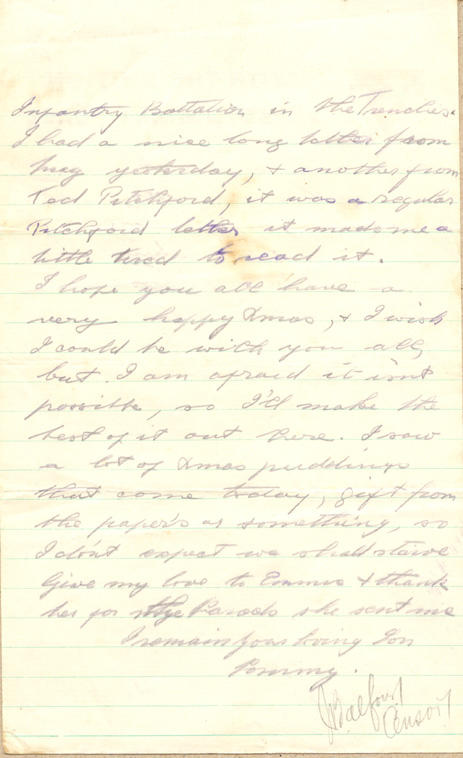 Infantry Battalion in the Trenches.
I had a nice long letter from
May yesterday, & another from
Ted Pitchford, it was a regular
Pitchford letter it made me a
little tired to read it.
I hope you all have a
very happy Xmas, & I wish
I could be with you all,
but I am afraid it isnt
possible, so I'll make the
best of it out here. I saw
a lot of Xmas puddings
that come today, gift from
the paper's or something, so
I don't expect we shall starve
Give my love to Emmie & thank
her for the Parcels she sent me
I remain your loving Son
Tommy.
J Balfour
Censor